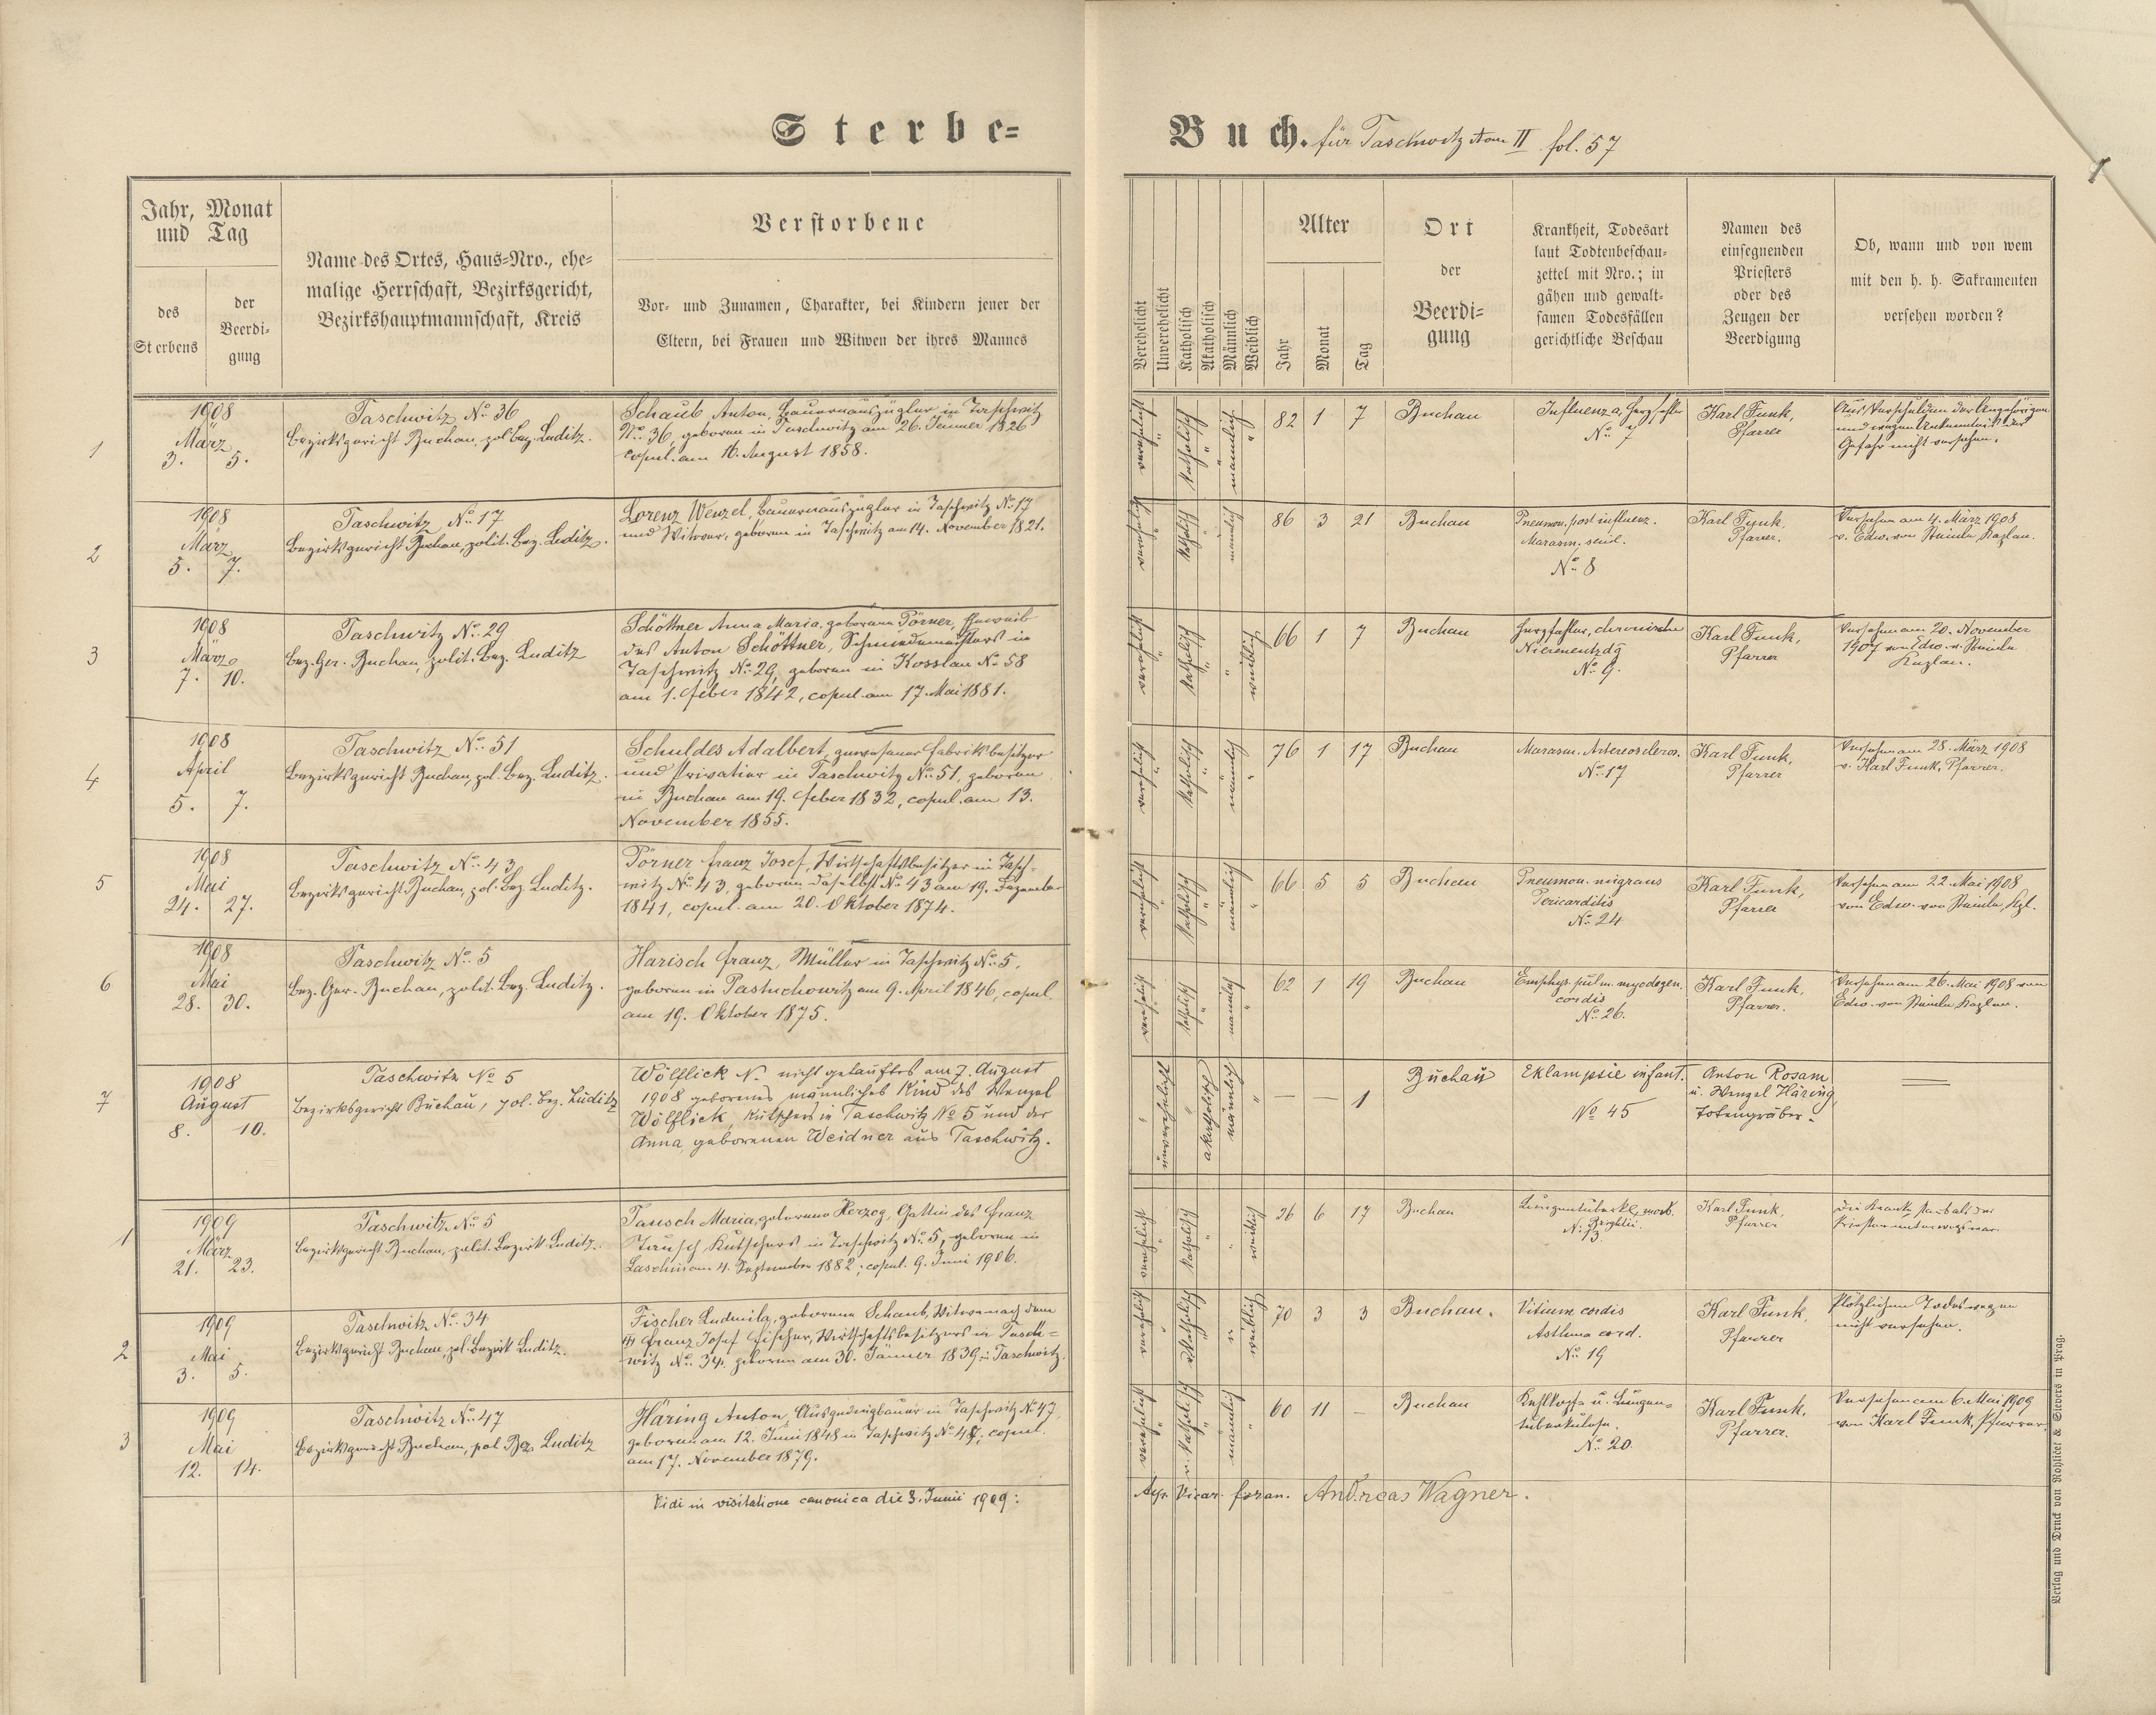 Sterbe=
Buch. für Taschwitz tom II fol. 57
Jahr, Monat
und Tag
des
Sterbens
der
Beerdi=
gung
Name des Ortes, Haus=Nro., ehe=
malige Herrschaft, Bezirksgericht,
Bezirkshauptmannschaft, Kreis
Verstorbene
Vor= und Zunamen, Charakter, bei Kindern jener der
Eltern, bei Frauen und Witwen der ihres Mannes
Verehelicht
Unverehelicht
Katholisch
Akatholisch
Männlich
Weiblich
Alter
Jahr
Monat
Tag
Ort
der
Beerdi=
gung
Krankheit, Todesart
laut Todtenbeschau=
zettel mit Nro.; in
gähen und gewalt=
samen Todesfällen
gerichtliche Beschau
Namen des
einsegnenden
Priesters
oder des
Zeugen der
Beerdigung
Ob, wann und von wem
mit den h. h. Sakramenten
versehen worden?
1
1908
März
3. 5.
Taschwitz No. 36
Bezirksgericht Buchau, pol. Bez. Luditz.
Schaub Anton, Bauernauszügler in Taschwitz
No. 36, geboren in Taschwitz am 26. Jänner 1826
copul. am 16. August 1858.
verehelicht katholisch männlich
82 1 7
Buchau
Influenza, Herzfehler
No. 7
Karl Funk,
Pfarrer
Aus Verschulden der Angehörigen
und wegen Unkenntnis der
Gefahr nicht versehen.
2
1908
März
5. 7.
Taschwitz No. 17
Bezirksgericht Buchau, polit. Bez. Luditz.
Lorenz Wenzel, Bauernauszügler in Taschwitz No. 17
und Witwer, geboren in Taschwitz am 14. November 1821.
verehelicht katholisch männlich
86 3 21
Buchau
Pneumon. post influenz.
Marasm. senil.
No. 8
Karl Funk,
Pfarrer.
Versehen am 4. März 1908
v. Edw. von Kaplan.
3
1908
März
7. 10.
Taschwitz No. 29
Bez. Ger. Buchau, polit. Bez. Luditz
Schöttner Anna Maria, geborene Pörner, Eheweib
des Anton Schöttner, Schmiedemeisters in
Taschwitz No. 29, geboren in Kosslau No. 58
am 1. Feber 1842, copul. am 17. Mai 1881.
verehelicht katholisch weiblich
66 1 7
Buchau
Herzfehler, chronische
Nierenentzdg
No. 9.
Karl Funk,
Pfarrer
Versehen am 20. November
1907 von Edw. v.
Kaplan.
4
1908
April
5. 7.
Taschwitz No. 51
Bezirksgericht Buchau, pol. Bez. Luditz.
Schuldes Adalbert, gewesener Fabriksbesitzer
und Privatier in Taschwitz No. 51, geboren
in Buchau am 19. Feber 1832, copul. am 13.
November 1855.
verehelicht katholisch männlich
76 1 17
Buchau
Marasm. Arterioscleros.
No. 17
Karl Funk,
Pfarrer
Versehen am 28. März 1908
v. Karl Funk, Pfarrer.
5
1908
Mai
24. 27.
Taschwitz No. 43
Bezirksgericht Buchau, pol. Bez. Luditz.
Pörner Franz Josef, Wirtschaftsbesitzer in Tasch=
witz No. 43, geboren daselbst No. 43 am 19. Dezember
1841, copul. am 20. Oktober 1874.
verehelicht katholisch männlich
66 5 5
Buchau
Pneumon. migrans
Pericarditis
No. 24
Karl Funk,
Pfarrer
Versehen am 22. Mai 1908
von Edw. von Kpl.
6
1908
Mai
28. 30.
Taschwitz No. 5
Bez. Ger. Buchau, polit. Bez. Luditz.
Harisch Franz, Müller in Taschwitz No. 5,
geboren in Pastuchowitz am 9. April 1846, copul.
am 19. Oktober 1875.
verehelicht katholisch männlich
62 1 19
Buchau
Emphys. pulm. myodegen.
cordis
No. 26.
Karl Funk,
Pfarrer.
Versehen am 26. Mai 1908 von
Edw. von Kaplan.
7
1908
August
8. 10.
Taschwitz No 5
Bezirksgericht Buchau, pol. Bez. Luditz
Wölflick N. nicht getauftes am 7. August
1908 geborenes männliches Kind des Wenzel
Wölflick, Kutschers in Taschwitz No 5 und der
Anna, geborenen Weidner aus Taschwitz.
unverehelicht akatholisch männlich
— — 1
Buchau
Eklampsie infant.
No 45
Anton Rosam
u. Wenzel Häring,
Totengräber.
1
1909
März
21. 23.
Taschwitz No. 5
Bezirksgericht Buchau, polit. Bezirk Luditz.
Tausch Maria, geborene Herzog, Gattin des Franz
Tausch, Kutschers in Taschwitz No. 5, geboren in
am 4. September 1882; copul. 9. Juni 1906.
verehelicht katholisch weiblich
26 6 17
Buchau
Lungentuberkl. morb.
Brightii.
No. 13.
Karl Funk,
Pfarrer
Die Kranke starb als der
Priester unterwegs war.
2
1909
Mai
3. 5.
Taschwitz No. 34
Bezirksgericht Buchau, pol. Bezirk Luditz.
Fischer Ludmila, geborene Schaub, Witwe nach dem
Franz Josef Fischer, Wirtschaftsbesitzers in Tasch=
witz No. 34, geboren am 30. Jänner 1839 in Taschwitz.
verehelicht katholisch weiblich
70 3 3
Buchau.
Vitium cordis
Asthma cord.
No. 19
Karl Funk,
Pfarrer
Plötzlichen Todes wegen
nicht versehen.
3
1909
Mai
12. 14.
Taschwitz No. 47
Bezirksgericht Buchau, pol. Bez. Luditz
Häring Anton, Ausgedingbauer in Taschwitz No 47,
geboren am 12. Juni 1848 in Taschwitz No. 47; copul.
am 17. November 1879.
verehelicht katholisch männlich
60 11 —
Buchau
Kehlkopf- u. Lungen=
tuberkulose.
No. 20.
Karl Funk,
Pfarrer.
Versehen am 6. Mai 1909
von Karl Funk, Pfarrer.
Vidi in visitatione canonica die 3. Junii 1909:
Vicar. foran. Andreas Wagner.
Verlag und Druck von Rohliček & Sievers in Prag.